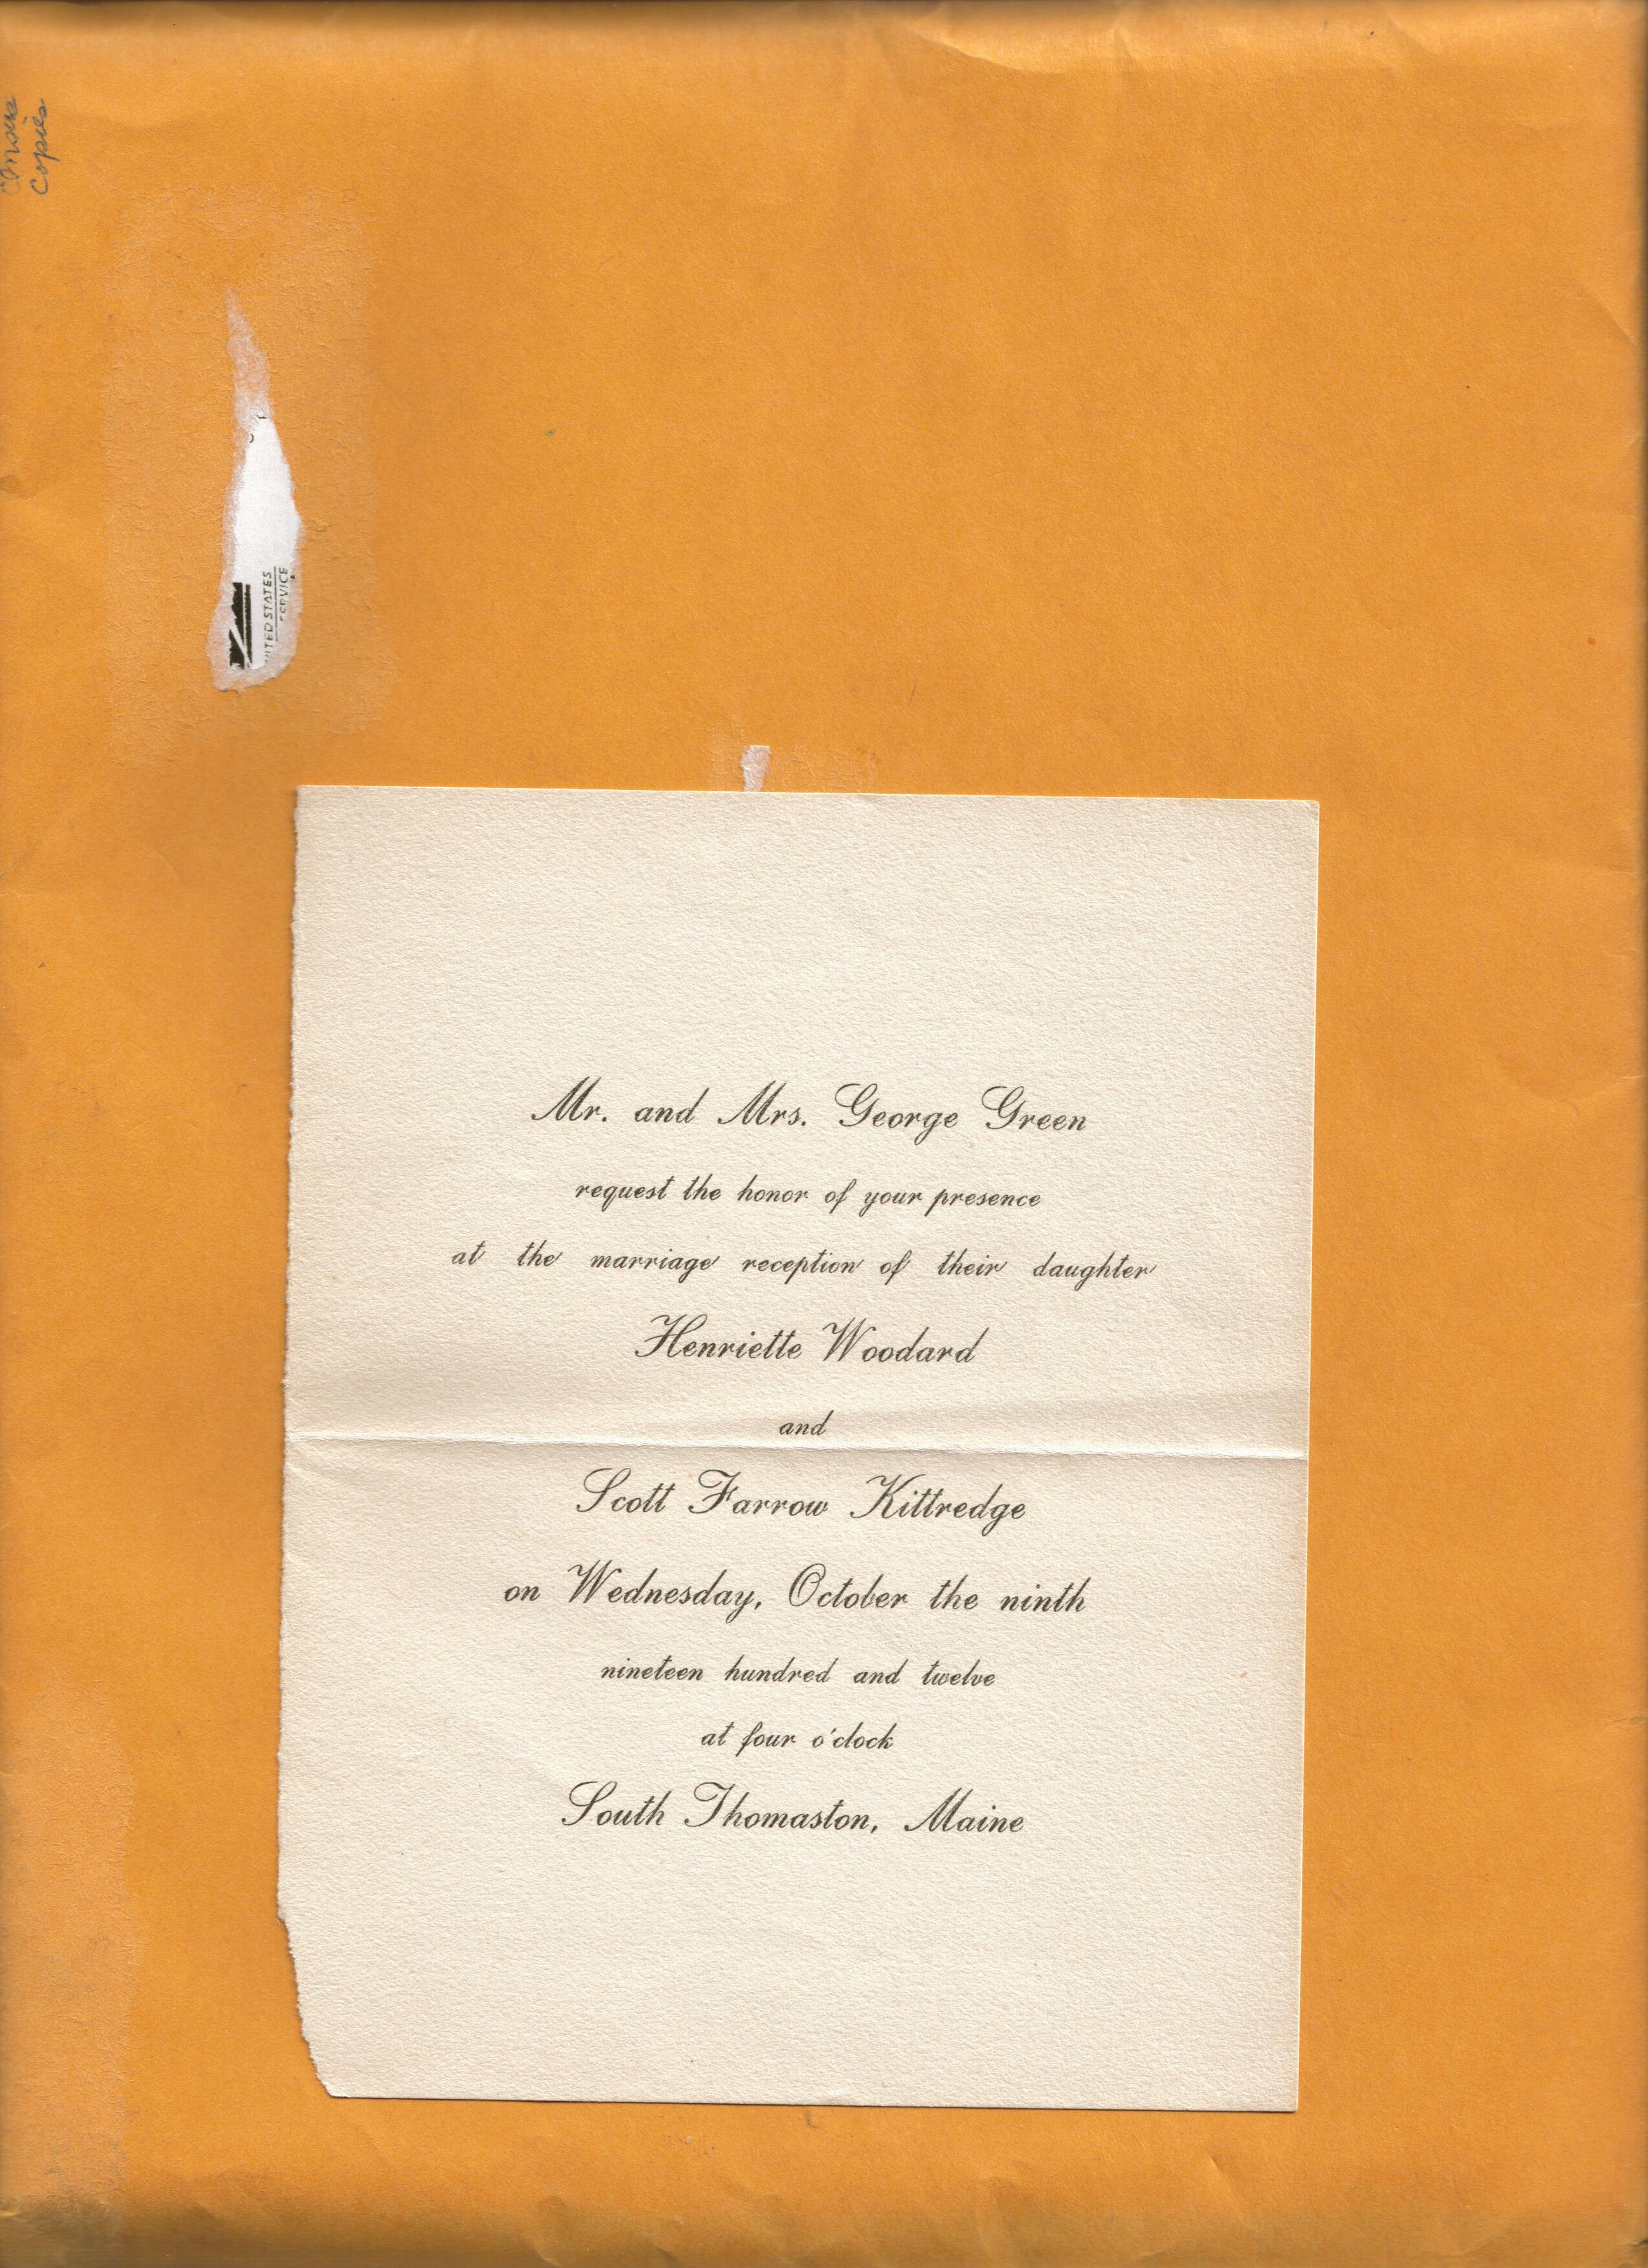 Copies
UNITED STATES
SERVICE
Mr. and Mrs. George Green
request the honor of your presence
at the marriage reception of their daughter
Henriette Woodard
and
Scott Farrow Kittredge
on Wednesday, October the ninth
nineteen hundred and twelve
at four o'clock
South Thomaston, Maine